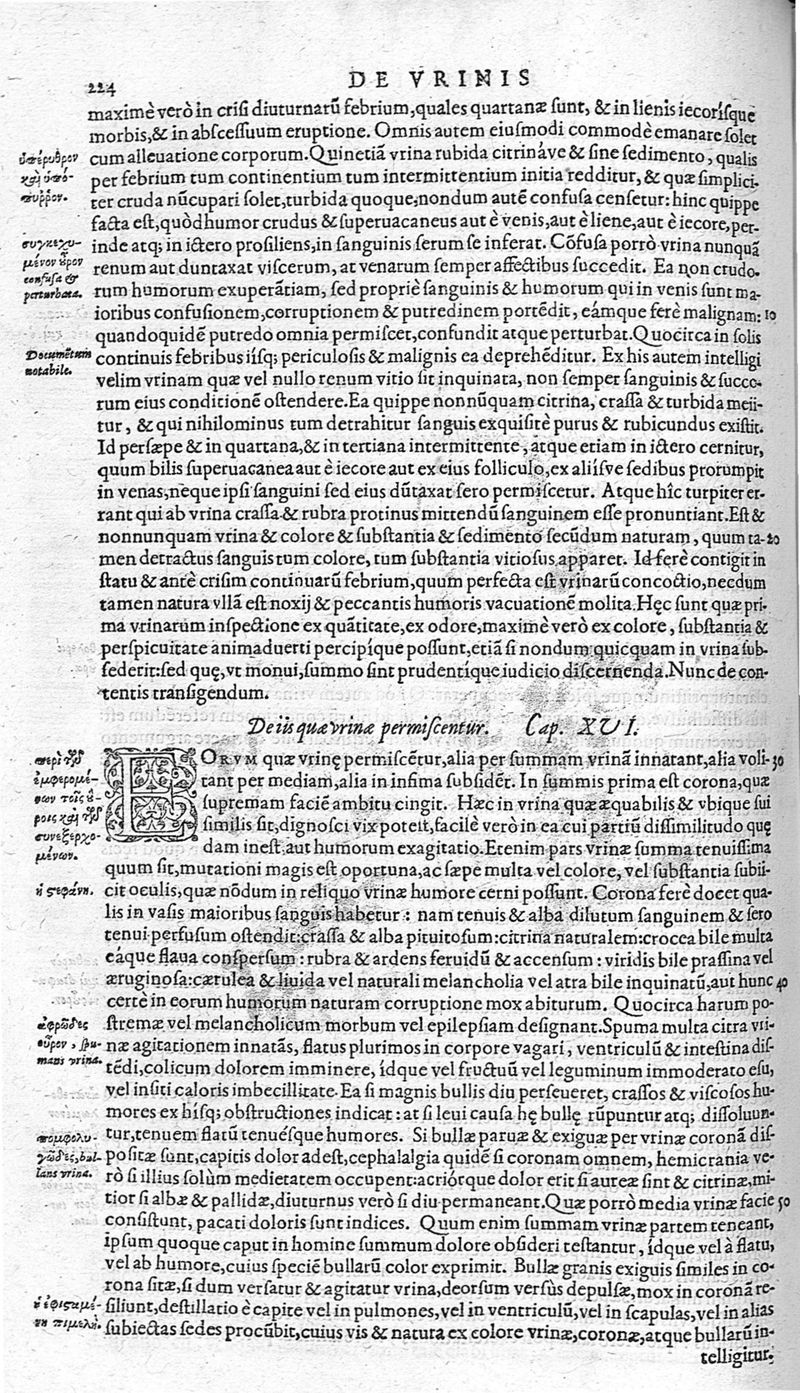 224
DE VRINIS
maximè verò in crisi diuturnarũ febrium, quales quartanæ sunt, & in lienis iecorísque
morbis, & in abscessuum eruptione. Omnis autem eiusmodi commodè emanare solet
cum alleuatione corporum. Quinetiã vrina rubida citrináve & sine sedimento, qualis
per febrium tum continentium tum intermittentium initia redditur, & quæ simplici-
ter cruda nũcupari solet, turbida quoque, nondum autẽ confusa censetur: hinc quippe
facta est, quòd humor crudus & superuacaneus aut è venis, aut è liene, aut è iecore, per-
inde atq; in ictero prosiliens, in sanguinis serum se inferat. Cõfusa porrò vrina nunquã
renum aut duntaxat viscerum, at venarum semper affectibus succedit. Ea non crudo-
rum humorum exuperãtiam, sed propriè sanguinis & humorum qui in venis sunt ma-
ioribus confusionem, corruptionem & putredinem portẽdit, eámque ferè malignam: 10
quandoquidẽ putredo omnia permiscet, confundit atque perturbat. Quocirca in solis
continuis febribus iisq; periculosis & malignis ea deprehẽditur. Ex his autem intelligi
velim vrinam quæ vel nullo renum vitio sit inquinata, non semper sanguinis & succo-
rum eius conditionẽ ostendere. Ea quippe nonnũquam citrina, crassa & turbida meii-
tur, & qui nihilominus tum detrahitur sanguis exquisitè purus & rubicundus existit.
Id persæpe & in quartana, & in tertiana intermittente, atque etiam in ictero cernitur,
quum bilis superuacanea aut è iecore aut ex eius folliculo, ex aliísve sedibus prorumpit
in venas, neque ipsi sanguini sed eius dũtaxat sero permiscetur. Atque hîc turpiter er-
rant qui ab vrina crassa & rubra protinus mittendũ sanguinem esse pronuntiant. Est &
nonnunquam vrina & colore & substantia & sedimento secũdum naturam, quum ta- 20
men detractus sanguis tum colore, tum substantia vitiosus apparet. Id ferè contigit in
statu & antè crisim continuarũ febrium, quum perfecta est vrinarũ concoctio, necdum
tamen natura vllã est noxij & peccantis humoris vacuationẽ molita. Hęc sunt quæ pri-
ma vrinarum inspectione ex quãtitate, ex odore, maximè verò ex colore, substantia &
perspicuitate animaduerti percipíque possunt, etiã si nondum quicquam in vrina sub-
sederit: sed quę, vt monui, summo sint prudentíque iudicio discernenda. Nunc de con-
tentis transigendum.
De iis quæ vrinæ permiscentur. Cap. XVI.
EORVM quæ vrinę permiscẽtur, alia per summam vrinã innatant, alia voli- 30
tant per mediam, alia in infima subsidẽt. In summis prima est corona, quæ
supremam faciẽ ambitu cingit. Hæc in vrina quæ æquabilis & vbique sui
similis sit, dignosci vix potest, facilè verò in ea cui partiũ dissimilitudo quę
dam inest, aut humorum exagitatio. Etenim pars vrinæ summa tenuissima
quum sit, mutationi magis est oportuna, ac sæpe multa vel colore, vel substantia subii-
cit oculis, quæ nõdum in reliquo vrinæ humore cerni possunt. Corona ferè docet qua-
lis in vasis maioribus sanguis habetur: nam tenuis & alba dilutum sanguinem & sero
tenui perfusum ostendit: crassa & alba pituitosum: citrina naturalem: crocea bile multa
eáque flaua conspersum: rubra & ardens feruidũ & accensum: viridis bile prassina vel
æruginosa: cærulea & liuida vel naturali melancholia vel atra bile inquinatũ, aut hunc 40
certè in eorum humorum naturam corruptione mox abiturum. Quocirca harum po-
stremæ vel melancholicum morbum vel epilepsiam designant. Spuma multa citra vri-
næ agitationem innatãs, flatus plurimos in corpore vagari, ventriculũ & intestina dis-
tẽdi, colicum dolorem imminere, ídque vel fructuũ vel leguminum immoderato esu,
vel insiti caloris imbecillitate. Ea si magnis bullis diu perseueret, crassos & viscosos hu-
mores ex hisq; obstructiones indicat: at si leui causa hę bullę rũpuntur atq; dissoluun-
tur, tenuem flatũ tenuésque humores. Si bullæ paruæ & exiguæ per vrinæ coronã dis-
positæ sunt, capitis dolor adest, cephalalgia quidẽ si coronam omnem, hemicrania ve-
rò si illius solùm medietatem occupent: acriórque dolor erit si aureæ sint & citrinæ, mi-
tior si albæ & pallidæ, diuturnus verò si diu permaneant. Quæ porrò media vrinæ facie 50
consistunt, pacati doloris sunt indices. Quum enim summam vrinæ partem teneant,
ipsum quoque caput in homine summum dolore obsideri testantur, ídque vel à flatu,
vel ab humore, cuius speciẽ bullarũ color exprimit. Bullæ granis exiguis similes in co-
rona sitæ, si dum versatur & agitatur vrina, deorsum versùs depulsæ, mox in coronã re-
siliunt, destillatio è capite vel in pulmones, vel in ventriculũ, vel in scapulas, vel in alias
subiectas sedes procũbit, cuius vis & natura ex colore vrinæ, coronæ, atque bullarũ in-
telligitur.
ὑπέρυθρον
καὶ ὑπό-
πυῤῥον.
συγκεχυ-
μένον οὖρον
confusa &
perturbata.
Documẽtum
notabile.
περὶ τῶν
ἐμφερομέ-
νων τοῖς οὔ-
ροις καὶ τῶν
συνεξερχο-
μένων.
ἡ στεφάνη.
ἀφρῶδες
οὖρον, spu-
mans vrina.
πομφολυ-
γῶδες, bul-
lans vrina.